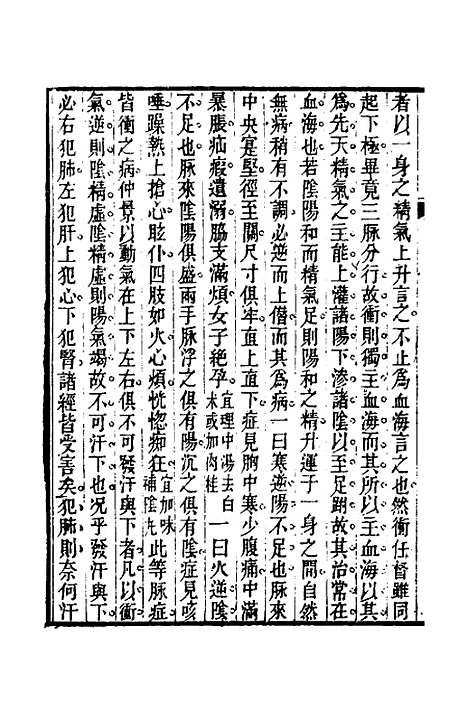 者以一身之精氣上升言之不止爲血海言之也然衝任督雖同
起下極畢竟三脈分行故衝則獨主血海而其所以主血海以其
爲先天精氣之主能上灌諸陽下滲諸陰以至足跗故其治常在
血海也若陰陽和而精氣足則陽和之精升運于一身之間自然
無病稍有不調必逆而上僭而其爲病一曰寒逆陽不足也脈來
中央寔堅徑至關尺寸俱牢直上直下症見胸中寒少腹痛中滿
暴脹疝瘕遺溺脇支滿煩女子絕孕宜理中湯去白
朮或加肉桂一曰火逆陰
不足也脈來陰陽俱盛兩手脈浮之俱有陽沉之俱有陰症見咳
唾躁熱上搶心眩仆四肢如火心煩恍惚痴狂宜加味
補陰丸此等脈症
皆衝之病仲景以動氣在上下左右俱不可發汗與下者凡以衝
氣逆則陰精虛陰精虛則陽氣竭故不可汗下也况乎發汗與下
必右犯肺左犯肝上犯心下犯腎諸經皆受害矣犯肺則奈何汗